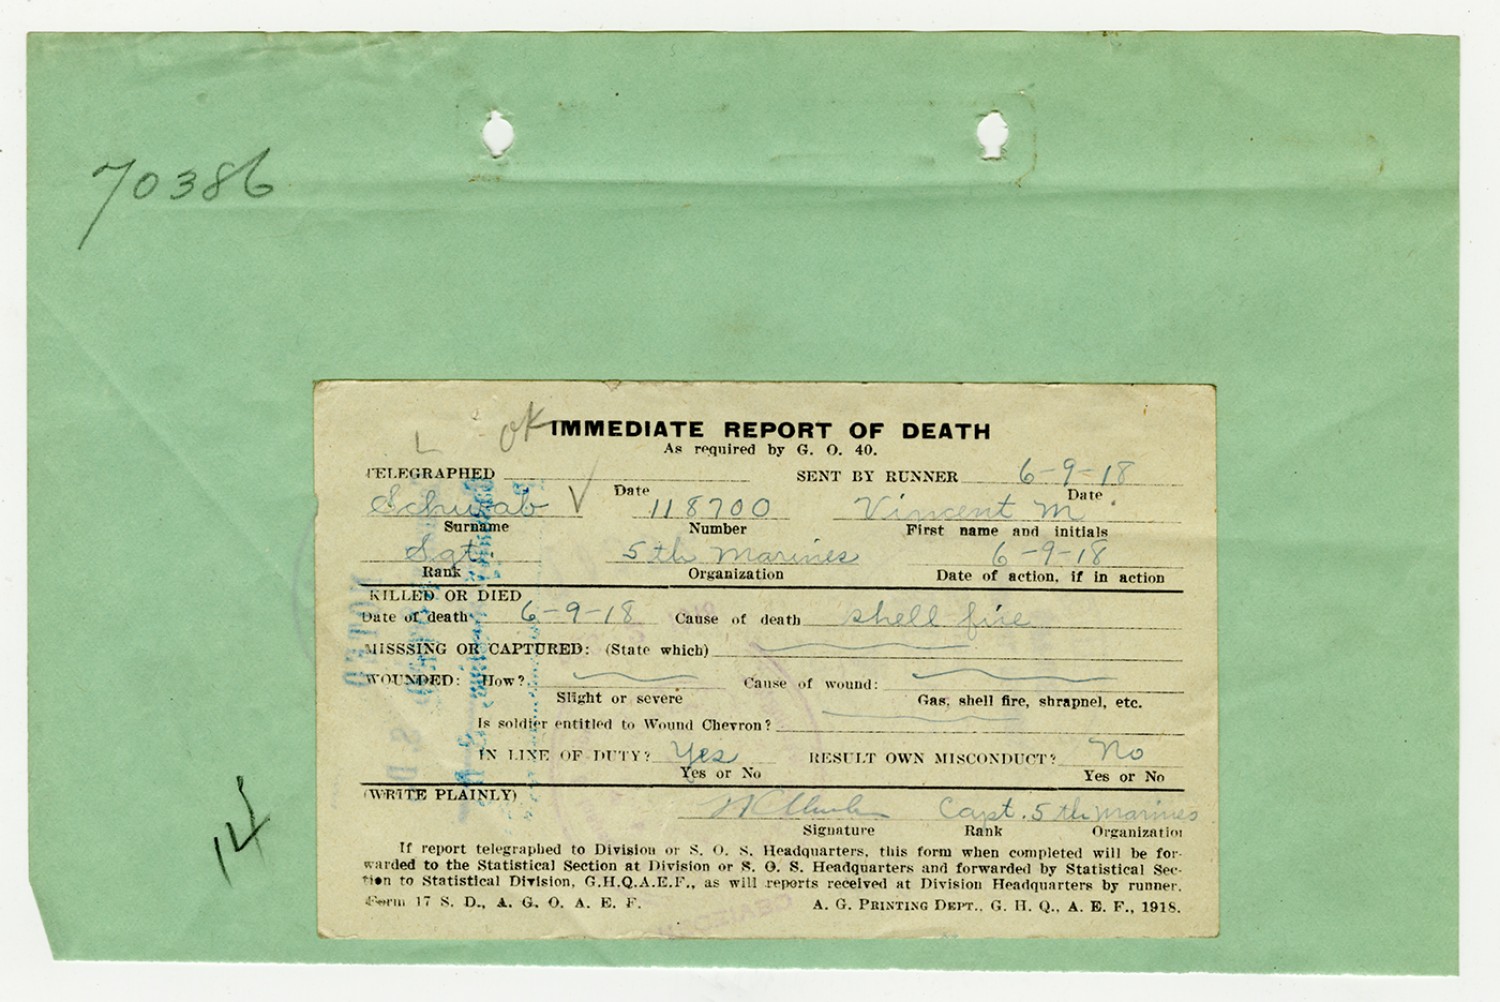 70386
OK IMMEDIATE REPORT OF DEATH
As required by G. O. 40.
TELEGRAPHED SENT BY RUNNER 6-9-18
Date Date
Schwab 118700 Vincent M.
Surname Number First name and initials
Sgt. 5th Marines 6-9-18
Rank Organization Date of action, if in action
KILLED OR DIED
Date of death 6-9-18 Cause of death shell fire
MISSSING OR CAPTURED: (State which)
WOUNDED: How? Cause of wound:
Slight or severe Gas, shell fire, shrapnel, etc.
Is soldier entitled to Wound Chevron?
IN LINE OF DUTY? Yes RESULT OWN MISCONDUCT? No
Yes or No Yes or No
(WRITE PLAINLY)
Capt. 5th Marines
Signature Rank Organization
If report telegraphed to Division or S. O. S. Headquarters, this form when completed will be for-
warded to the Statistical Section at Division or S. O. S. Headquarters and forwarded by Statistical Sec-
tion to Statistical Division, G.H.Q.A.E.F., as will reports received at Division Headquarters by runner.
Form 17 S. D., A. G. O. A. E. F. A. G. PRINTING DEPT., G. H. Q., A. E. F., 1918.
14